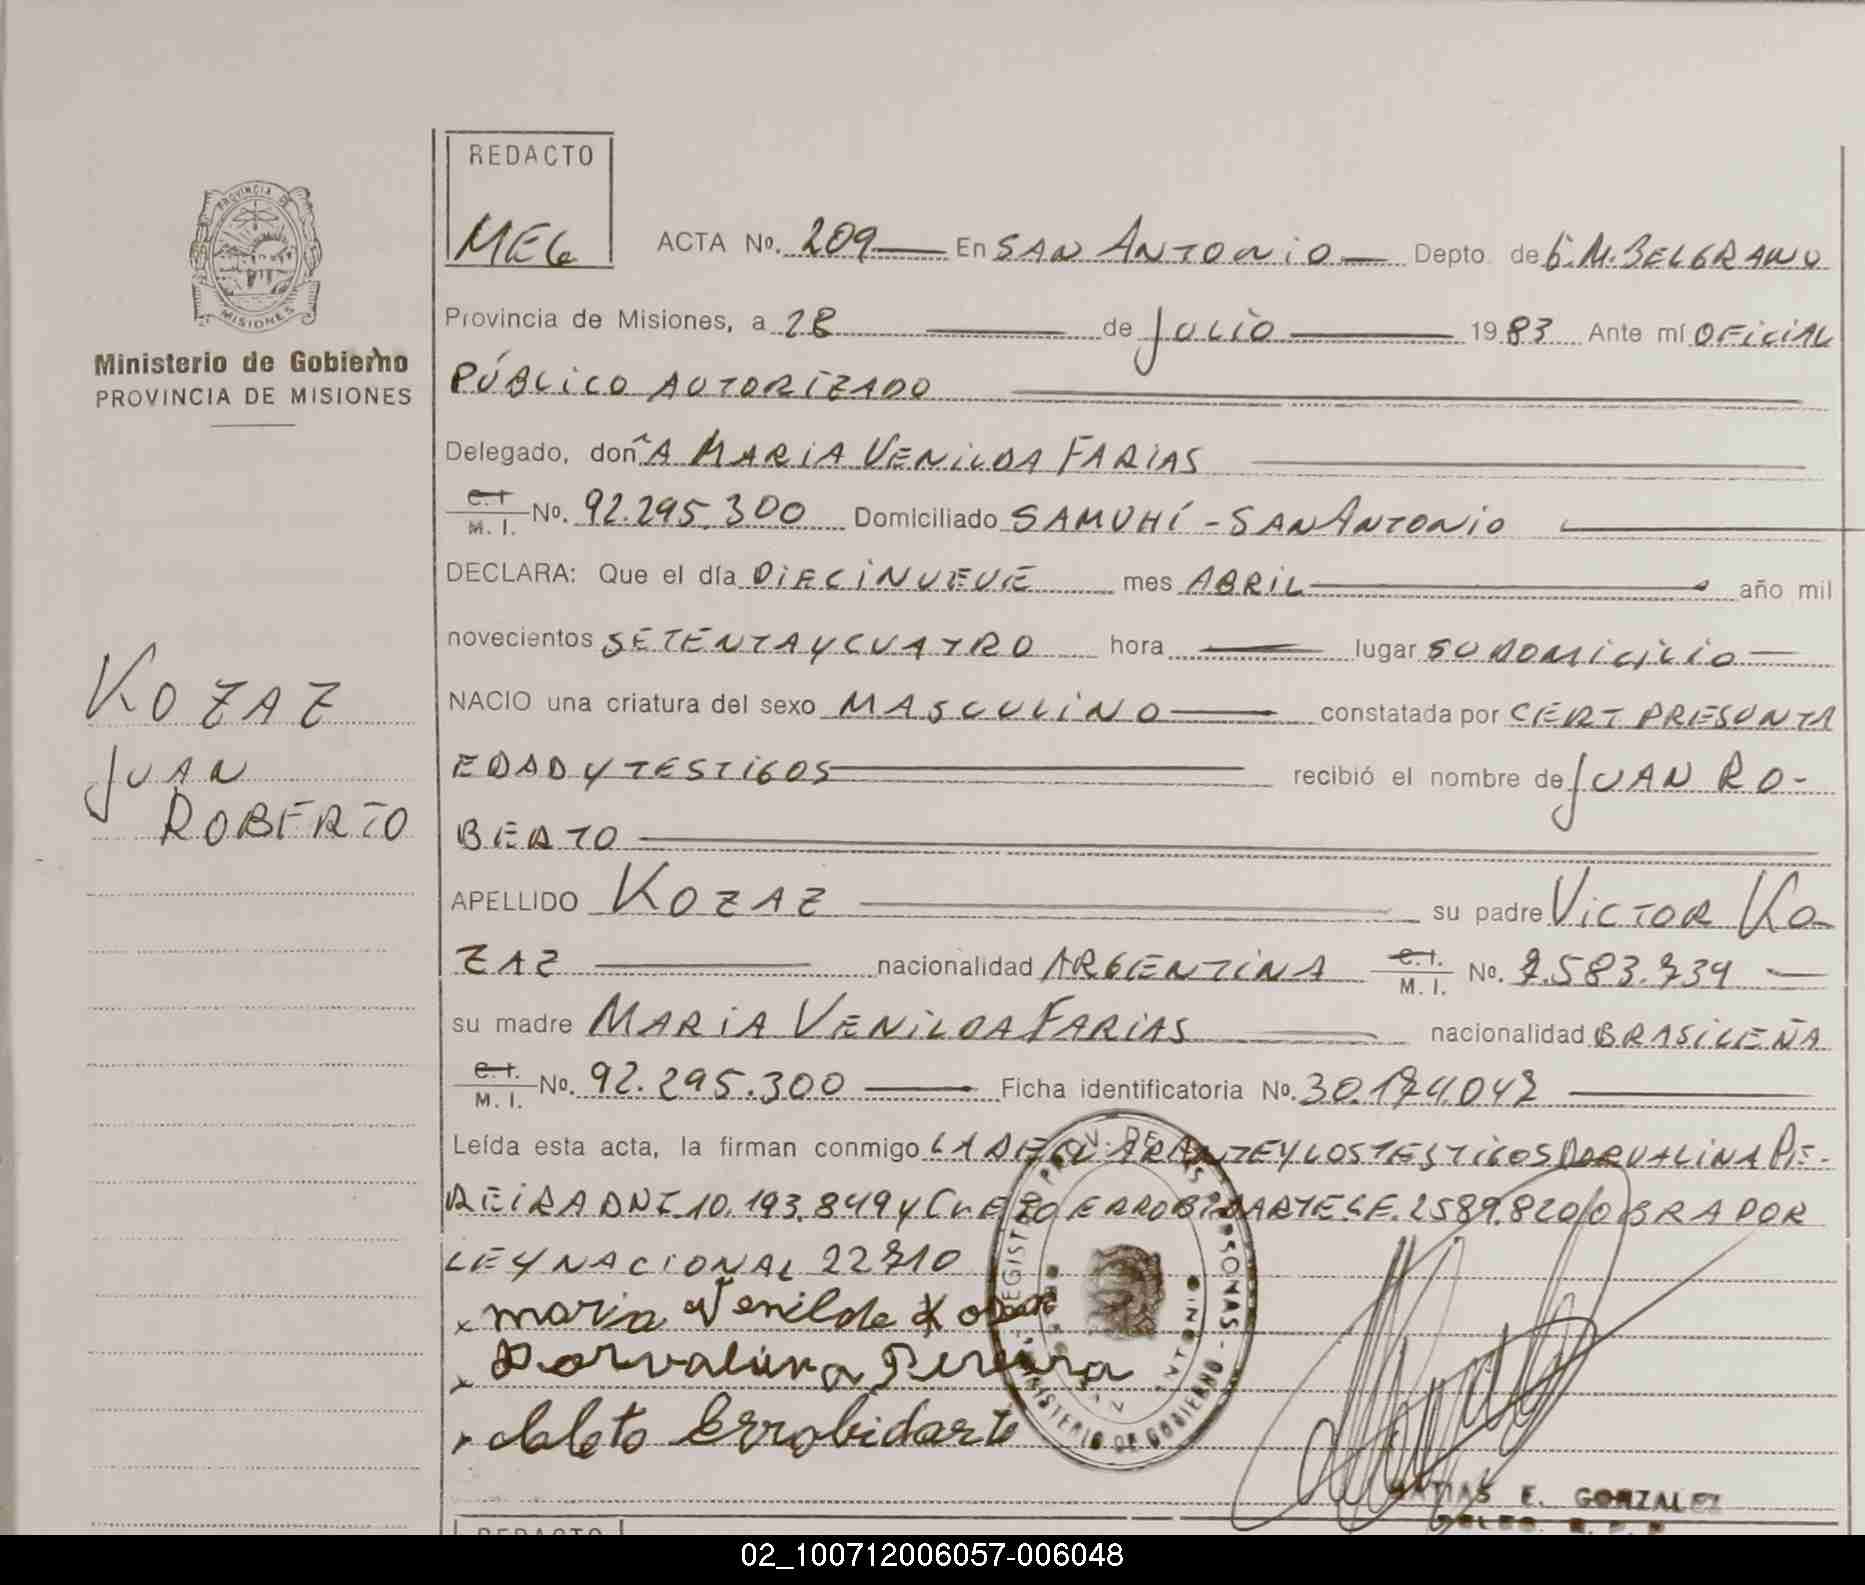 REDACTO
MEG
ACTA No. 209 En SAN ANTONIO Depto. de G.M.BELGRANO
PROVINCIA DE MISIONES
Provincia de Misiones, a 28 de JULIO 1983 Ante mí OFICIAL
Ministerio de Gobierno
PROVINCIA DE MISIONES
PÚBLICO AUTORIZADO
Delegado, doñA MARIA VENILDA FARIAS
C.I. M. I. No. 92.295.300 Domiciliado SAMUHÍ - SAN ANTONIO
DECLARA: Que el día DIECINUEVE mes ABRIL año mil
novecientos SETENTA Y CUATRO hora lugar SU DOMICILIO
KOZAZ
NACIO una criatura del sexo MASCULINO constatada por CERT PRESUNTA
JUAN
EDAD Y TESTIGOS recibió el nombre de JUAN RO-
ROBERTO
BERTO
APELLIDO KOZAZ su padre VICTOR KO-
ZAZ nacionalidad ARGENTINA C.I. M. I. No. 7.583.734
su madre MARIA VENILDA FARIAS nacionalidad BRASILEÑA
C.I. M. I. No. 92.295.300 Ficha identificatoria No. 30.174.047
Leída esta acta, la firman conmigo LA DECLARANTE Y LOS TESTIGOS DORVALINA PE-
REIRA DNI 10.193.849 Y CLETO ERROBIDARTE L.E. 2589.820/OBRA POR
LEY NACIONAL 22710
x maria Venilde Kozaz
x Dorvalina Pereira
x Cleto Errobidarte
REGISTRO PROV. DE LAS PERSONAS - MINISTERIO DE GOBIERNO
SAN ANTONIO
MATIAS E. GONZALEZ
REDACTO
02_100712006057-006048